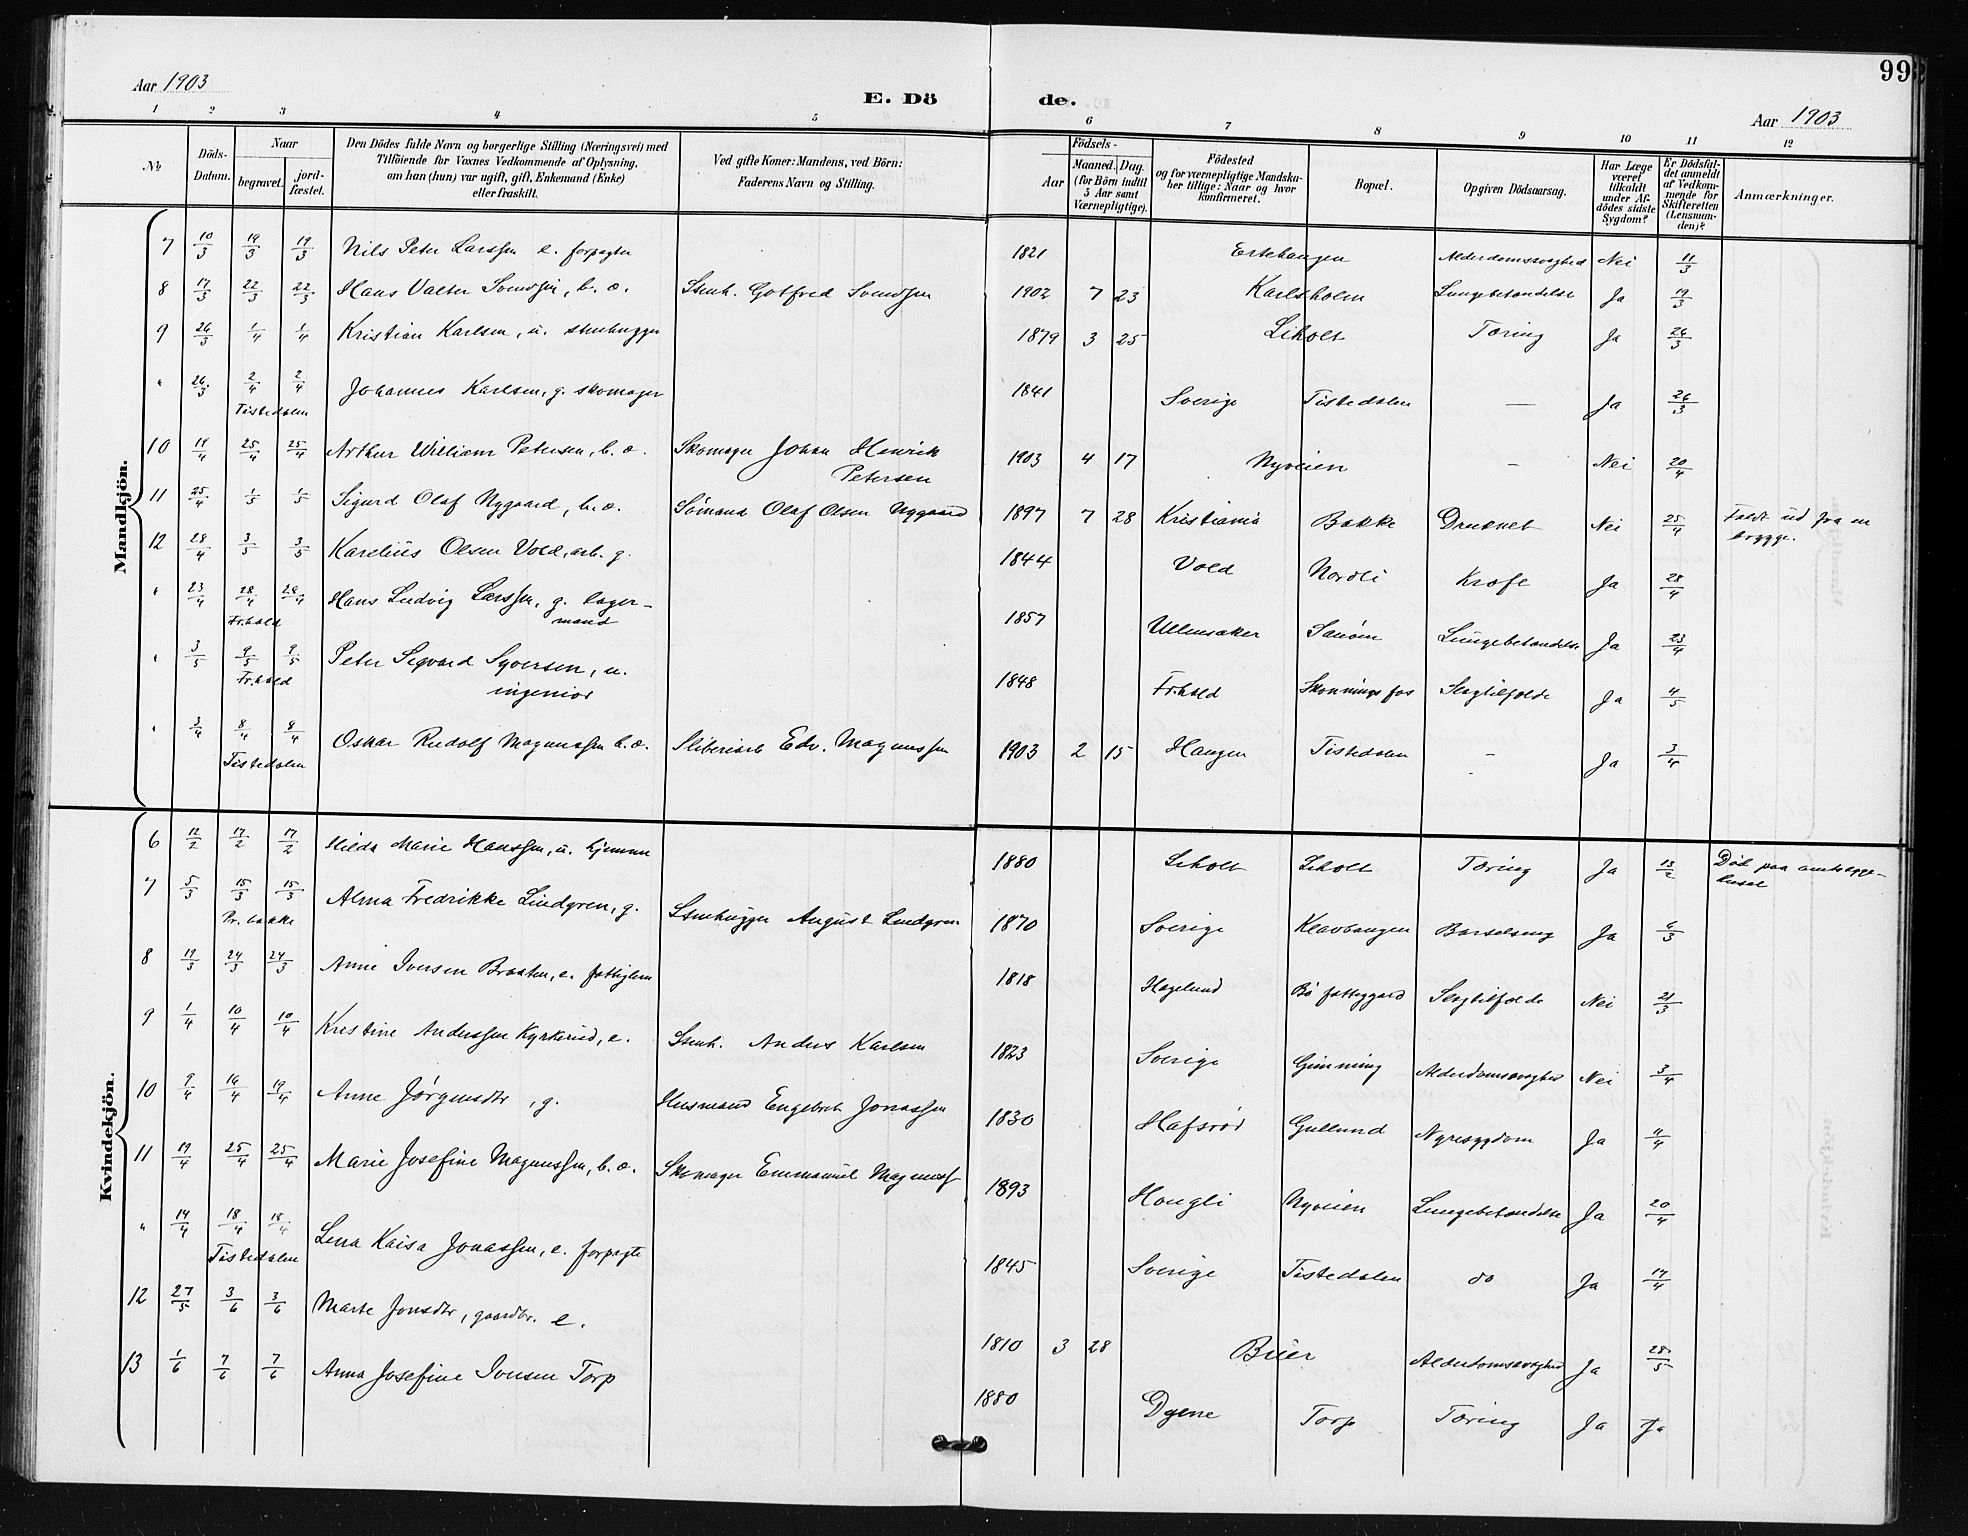 Aar 1903
E. Dö
de.
99
Aar 1903
1 2 3 4 5 6 7 8 9 10 11 12
№
Döds-Datum.
Naar
begravet.
jord-fæstet.
Den Dödes fulde Navn og borgerlige Stilling (Næringsvei) med
Tilföiende for Voxnes Vedkommende af Oplysning,
om han (hun) var ugift, gift, Enkemand (Enke)
eller fraskilt.
Ved gifte Koner: Mandens, ved Börn:
Faderens Navn og Stilling.
Födsels-
Aar
Maaned. Dag.
(for Börn indtil
5 Aar samt
Værnepligtige).
Födested
og for værnepligtige Mandska-
ber tillige: Naar og hvor
konfirmeret.
Bopæl.
Opgiven Dödsaarsag.
Har Læge
været
tilkaldt
under Af-
dödes sidste
Sygdom?
Er Dödsfal-
det anmeldt
af Vedkom-
mende for
Skifteretten
(Lensman-
den)?
Anmærkninger.
Mandkjön.
7 10/3 19/3 19/3 Nils Peter Larssen e. forpagter 1821 Ertehaugen Alderdomssvaghed Nei 11/3
8 17/3 22/3 22/3 Hans Valter Svendsen, b. æ. Stenh. Gotfred Svendsen 1902 7 23 Karlsholm Lungebetændelse Ja 19/3
9 26/3 1/4 1/4 Kristian Karlsen, u. stenhugger 1879 3 25 Liholt Tæring Ja 26/3
" 26/3 2/4 2/4 Johannes Karlsen, g. skomager 1841 Sverige Tistedalen — Ja 26/3
Tistedalen
10 19/4 25/4 25/4 Arthur William Petersen, b. æ. Skomager Johan Henrik 1903 4 17 Nyveien — Nei 20/4
Petersen
11 25/4 1/5 1/5 Sigurd Olaf Nygaard, b. æ. Sømand Olaf Olsen Nygaard 1897 7 28 Kristiania Bakke Druknet Nei 25/4 Faldt ud fra en
brygge.
12 28/4 3/5 3/5 Karelius Olsen Vold, arb. g. 1844 Vold Nordli Kræft Ja 28/4
" 23/4 28/4 28/4 Hans Ludvig Larssen, g. lager-
mand 1857 Ullensaker Sanøen Lungebetændelse Ja 23/4
Fr.hald
" 3/5 9/5 9/5 Peter Sigvard Syversen, u.
ingeniør 1848 Fr.hald Skonningsfos Slagtilfælde Ja 4/5
Fr.hald
" 3/4 8/4 8/4 Oskar Rudolf Magnussen b. æ. Sliberiarb Edv. Magnussen 1903 2 15 Haugen Tistedalen — Ja 3/4
Tistedalen
Kvindekjön.
6 12/2 17/2 17/2 Hilda Marie Hanssen, u. hjemme 1880 Liholt Liholt Tæring Ja 13/2 Død paa amtssyge-
huset
7 5/3 15/3 15/3 Alma Fredrikke Lindgren, g. Stenhugger August Lindgren 1870 Sverige Klavhaugen Barselseng Ja 6/3
Pr. bakke
8 19/3 24/3 24/3 Anne Iversen Braaten, e. fattiglem 1818 Hagelund Bø fattiggaard Slagtilfælde Nei 21/3
9 1/4 10/4 10/4 Kristine Anderssen Kyrkerud, e. Stenh. Anders Karlsen 1823 Sverige Gimming Alderdomssvaghed Nei 3/4
10 9/4 16/4 19/4 Anne Jørgensdtr, g. Husmand Engebret Jonassen 1830 Hafsrød Gullund Nyresygdom Ja 11/4
11 19/4 25/4 25/4 Marie Josefine Magnussen, b. æ. Skomager Emmanuel Magnuss 1893 Hougli Nyveien Lungebetændelse Ja 20/4
" 14/4 18/4 18/4 Lena Kaisa Jonassen, e. forpagte 1845 Sverige Tistedalen do Ja 17/4
Tistedalen
12 27/5 3/6 3/6 Marte Jonsdtr, gaardbr. e. 1810 3 28 Buer Alderdomssvaghed Ja 28/5
13 1/6 7/6 7/6 Anna Josefine Iversen Torp 1880 Dyene Torp Tæring Ja Ja